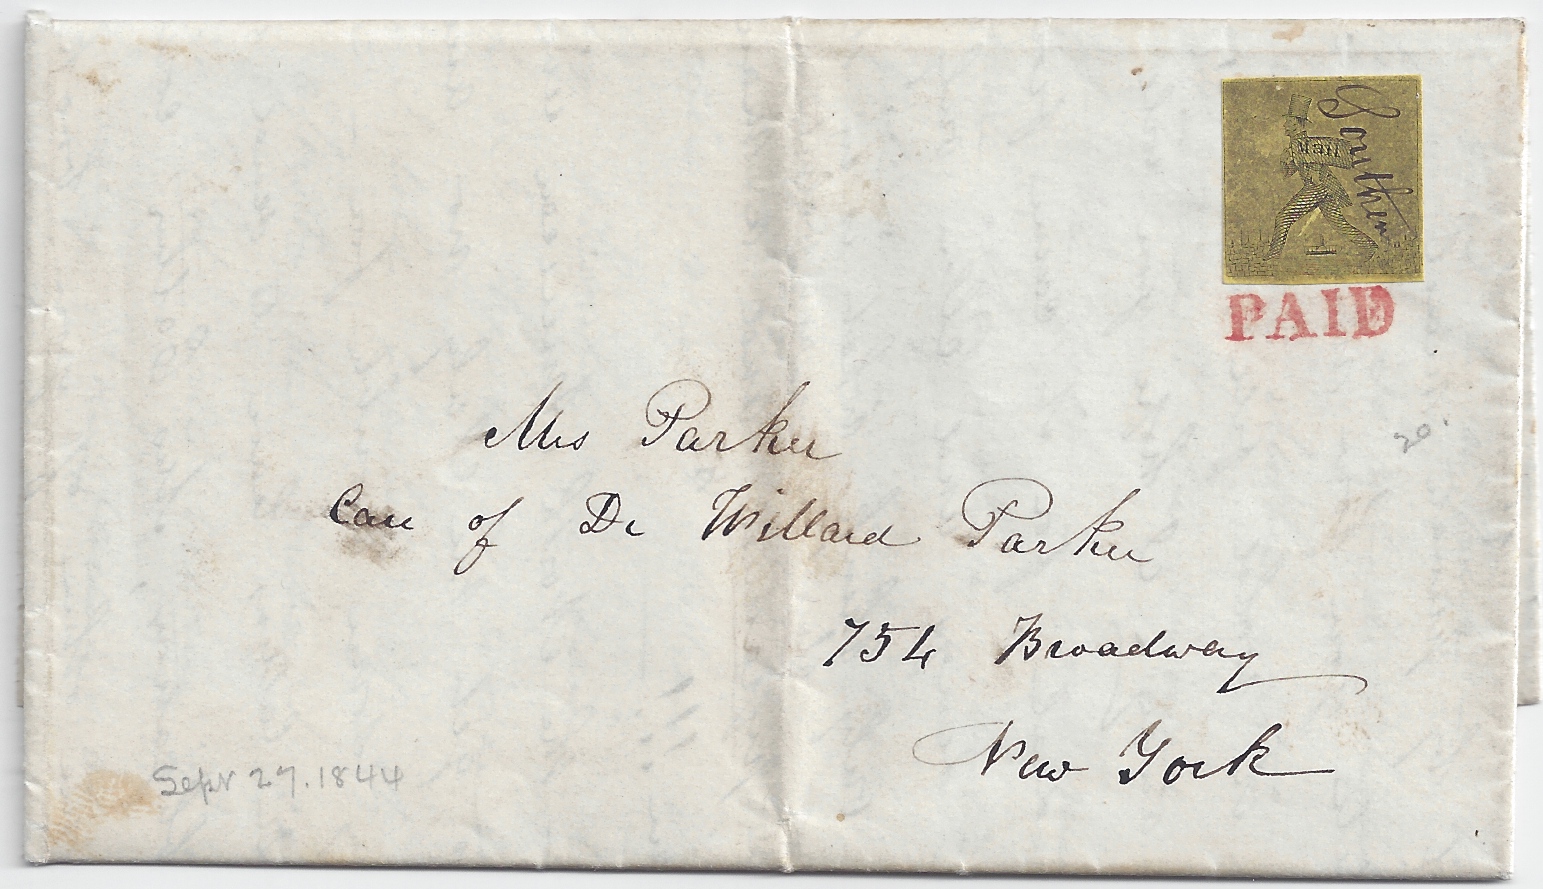 Southern
Mail
PAID
Mrs Parker
Care of Dr Willard Parker
754 Broadway
New York
20
Sept 27. 1844